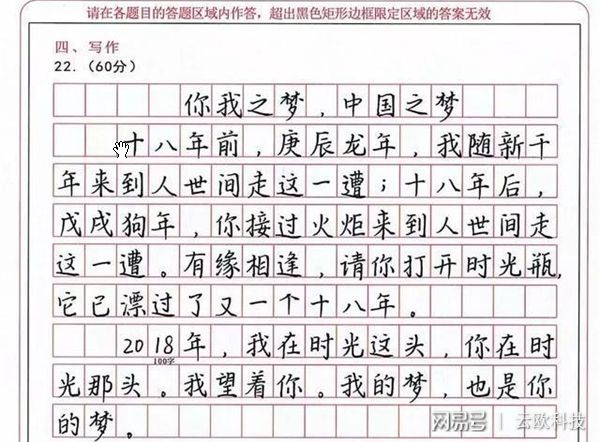 请在各题目的答题区域内作答，超出黑色矩形边框限定区域的答案无效
四、写作
22.（60分）
你我之梦，中国之梦
十八年前，庚辰龙年，我随新千
年来到人世间走这一遭；十八年后，
戊戌狗年，你接过火炬来到人世间走
这一遭。有缘相逢，请你打开时光瓶，
它已漂过了又一个十八年。
2018年，我在时光这头，你在时
100字
光那头。我望着你。我的梦，也是你
的梦。
网易号 | 云欧科技